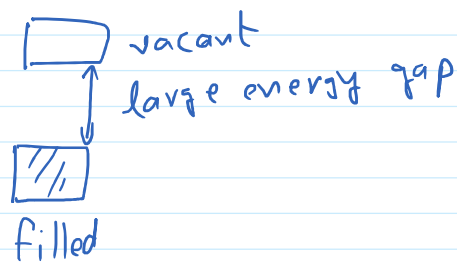 vacant
large energy gap
filled